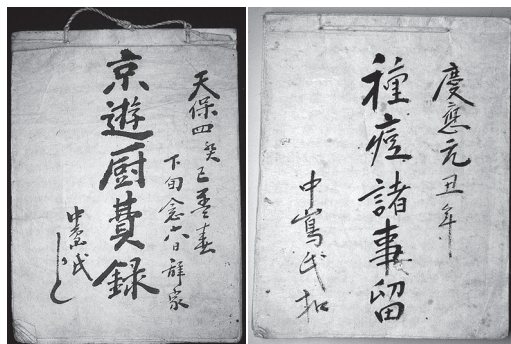 天保四癸巳季春
下旬念六日辞家
京遊厨費録
中嶌氏
慶應元丑年
種痘諸事留
中嶌氏扣